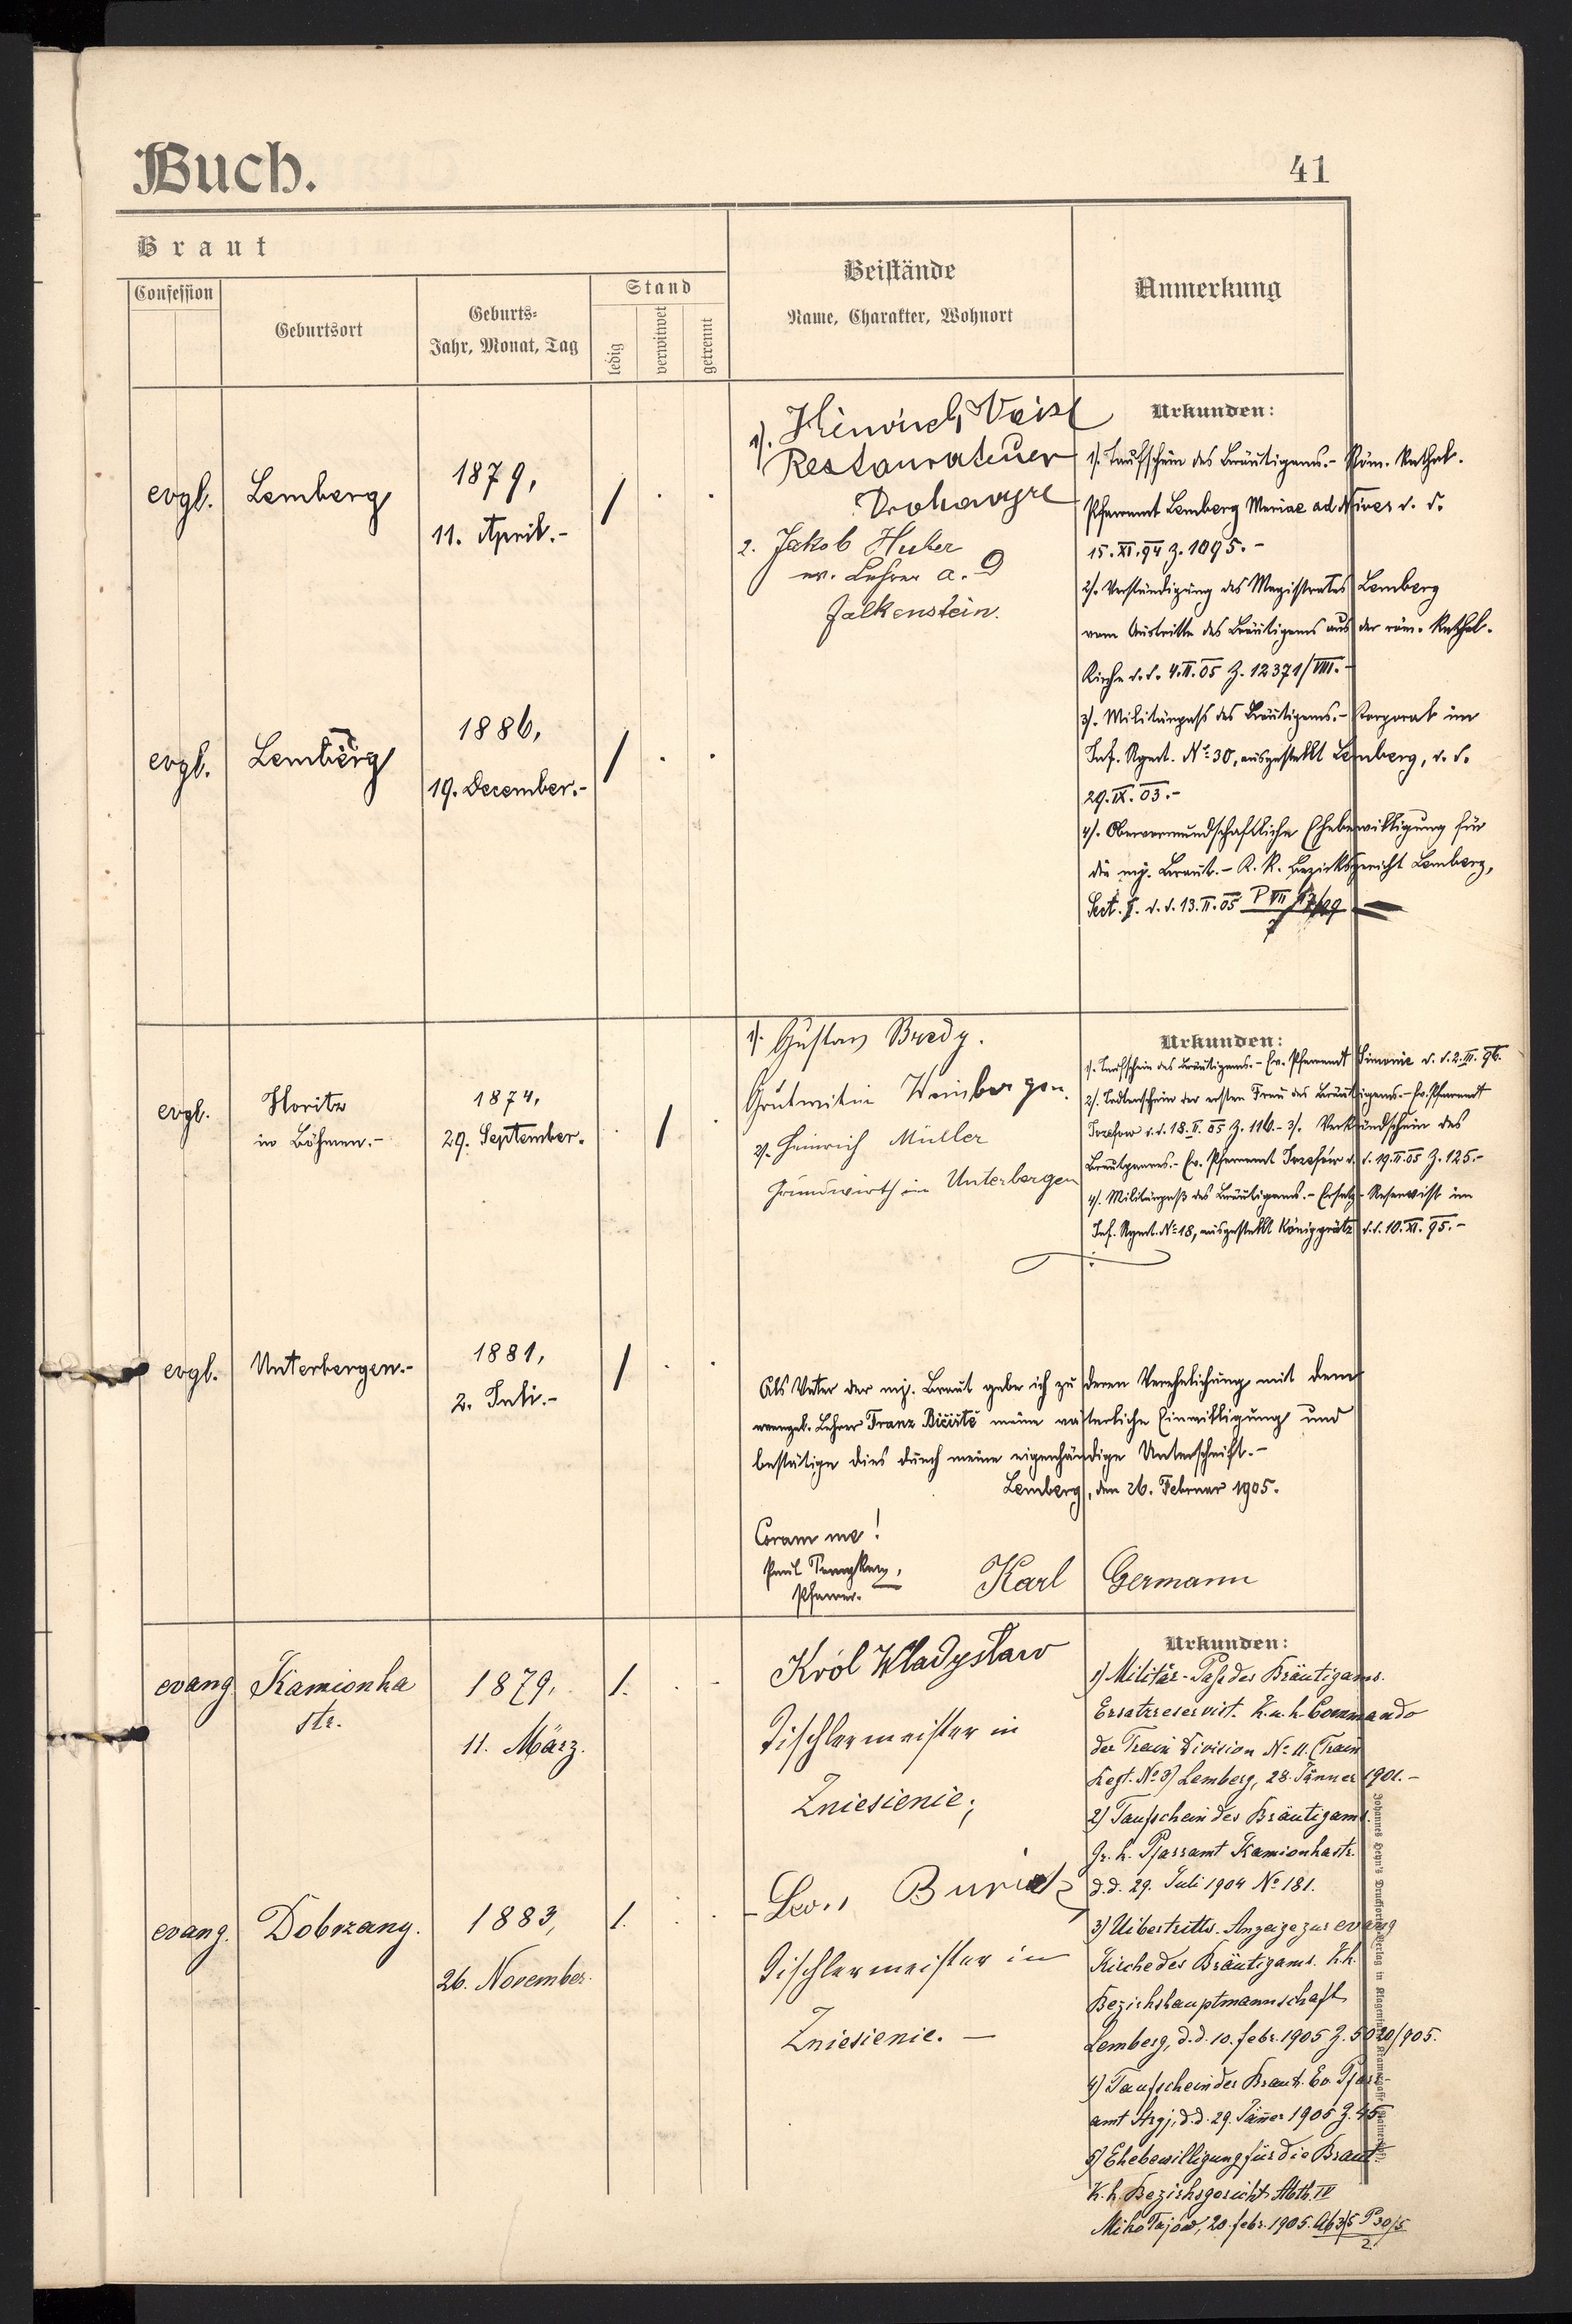 Buch.
41
Braut
Confession
Geburtsort
Geburts-
Jahr, Monat, Tag
Stand
ledig
verwitwet
getrennt
Beistände
Name, Charakter, Wohnort
Anmerkung
evgl.
Lemberg
1879,
11. April.-
/ . .
1).
Restaurateur
2. Jakob Huber
ev. Lehrer a. D
Falkenstein.
Urkunden:
1). Taufschein des Bräutigams.- Röm. kathol.
Pfarramt Lemberg Mariae ad Nives d. d.
15.XI.94 Z. 1095.-
2). Verständigung des Magistrates Lemberg
vom Austritte des Bräutigams aus der röm. kathol.
Kirche d. d. 4.II.05 Z. 12371/VIII.-
3). Militärpass des Bräutigams.- Korporal im
Inf. Rgmt. No 30, ausgestellt Lemberg, d. d.
29.IX.03.-
4). Obervormundschaftliche Ehebewilligung für
die mj. Braut.- K. K. Bezirksgericht Lemberg,
Sect. I. d. d. 13.II.05 P VII
evgl.
Lemberg
1886,
19. December.-
/ . .
evgl.
Horitz
in Böhmen.-
1874,
29. September.
. / .
1). Gustav Bredy.
Grutwirtin Weinbergen.
2). Heinrich Müller
Grundwirth in Unterbergen
Urkunden:
1). Taufschein des Bräutigams.- Ev. Pfarramt d. d. 2.III.96.
2). Todtenschein der ersten Frau des Bräutigams.- Ev. Pfarramt
Josefow d. d. 18.II.05 Z. 116.- 3). Verkündschein des
Bräutgams.- Ev. Pfarramt Josefow d. d. 19.II.05 Z. 125.-
4). Militärpaß des Bräutigams.- Ersatz-Reservist im
Inf. Rgmt. No 18, ausgestellt Königgrätz d. d. 10.XI.95.-
evgl.
Unterbergen.-
1881,
2. Juli.-
/ . .
Als Vater der mj. Braut gebe ich zu deren Verehelichung mit dem
evangel. Lehrer Franz Bičiště meine väterliche Einwilligung und
bestätige dies durch meine eigenhändige Unterschrift.-
Lemberg, den 26. Februar 1905.
Coram me!
Paul
Pfarrer.
Karl Germann
evang
Kamionka
str.
1879,
11. März.
1. . -
Król Władysław
Tischlermeister in
Zniesienie;
Urkunden:
1) Militär-Paß des Bräutigams.
Ersatzreservist. K. u. k. Commando
der Train Division No 11. (Train
Regt. No 3) Lemberg, 28. Jänner 1901.-
2) Taufschein des Bräutigams.
Gr. k. Pfarramt Kamionka str.
d.d. 29. Juli 1904 No 181.
3) Uibertritts-Anzeige zur evang
Kirche des Bräutigams. K.k.
Bezirkshauptmannschaft
Lemberg, d.d. 10. febr. 1905 Z. 5020/905.
4) Taufschein der Braut. Ev. Pfarr-
amt Stryj, d.d. 29. Jänner 1905 Z. 45
5) Ehebewilligung für die Braut.
K. k. Bezirksgericht Abth. IV
Mikołajów, 20. febr. 1905.
evang.
Dobrzany.
1883,
26. November.
1. . .
Tischlermeister in
Zniesienie. —
Johannes Heyn's Druckforten-Verlag in Klagenfurt